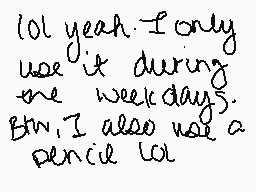 lol yeah. I only
use it during
the weekdays.
Btw, I also use a
pencil lol